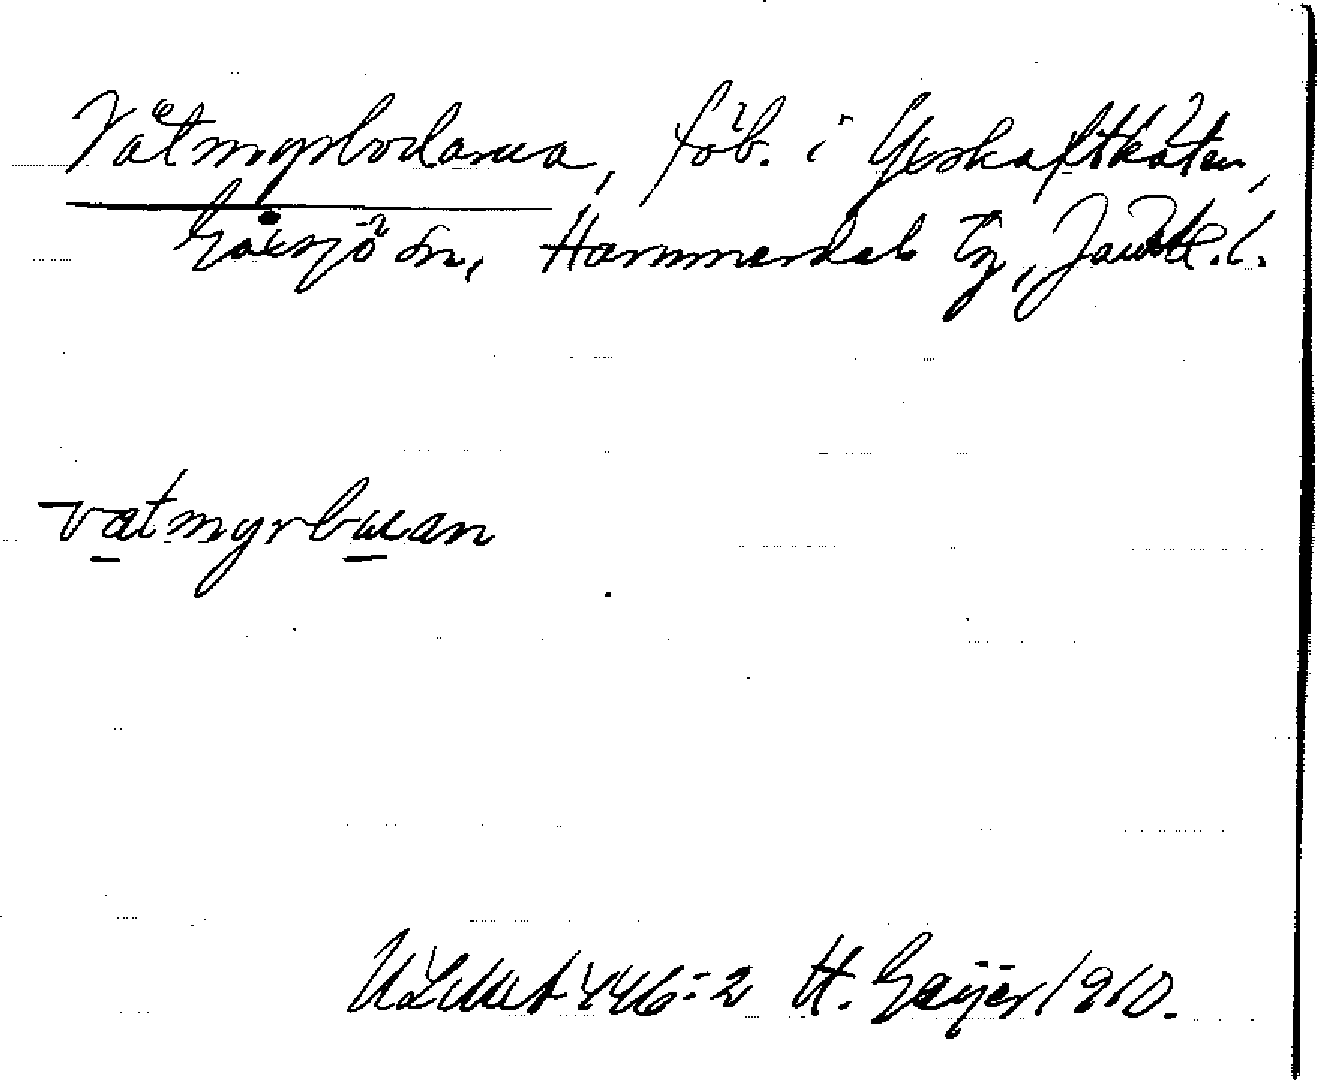 Våtmyrbodarna, fäb. i Yxskaftkälen,
Gåxsjö sn, Hammerdals tg, Jämtl. l.
vatmyrbuan
ULMA 446:2 H. Geijer 1910.